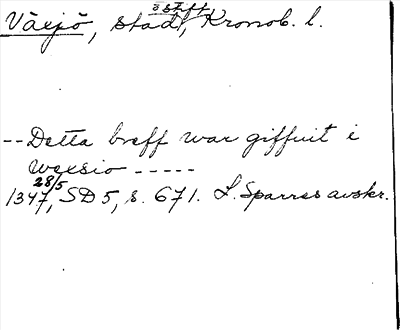 Växjö, stad, Kronob. l.
östfr
--Detta breff war giffuit i
wexsio -----
1347 28/5, SD 5, s. 671. L. Sparres avskr.